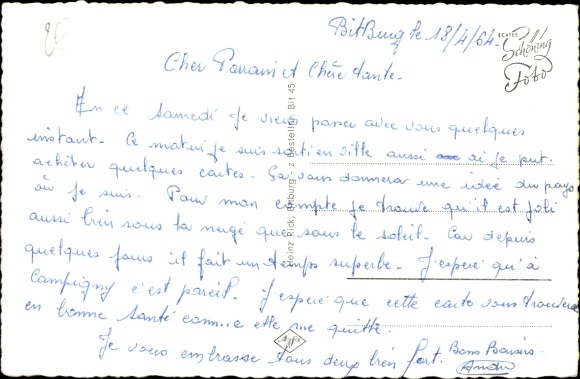 BitBurg le 18/4/64.
ECHTES Schöning Foto
Cher Parrain et Chère tante.
En ce samedi je viens passer avec vous quelques
instant. Ce matin je suis sorti en ville aussi ai je put.
achêter quelques cartes. Sa vous donnera une idée du pays
où je suis. Pour mon compte je trouve qu'il est joli
aussi bien sous la neige que sous le soleil. Car depuis
quelques jours il fait un temps superbe. J'espère qu'à
Campigny c'est pareil. J'espère que cette carte vous trouvera
en bonne santé comme elle me quitte
Je vous embrasse tous deux bien fort. Bons Baisers.
André
Heinz Rick, Bitburg. z Bestell-Nr. Bit 45
Agfa